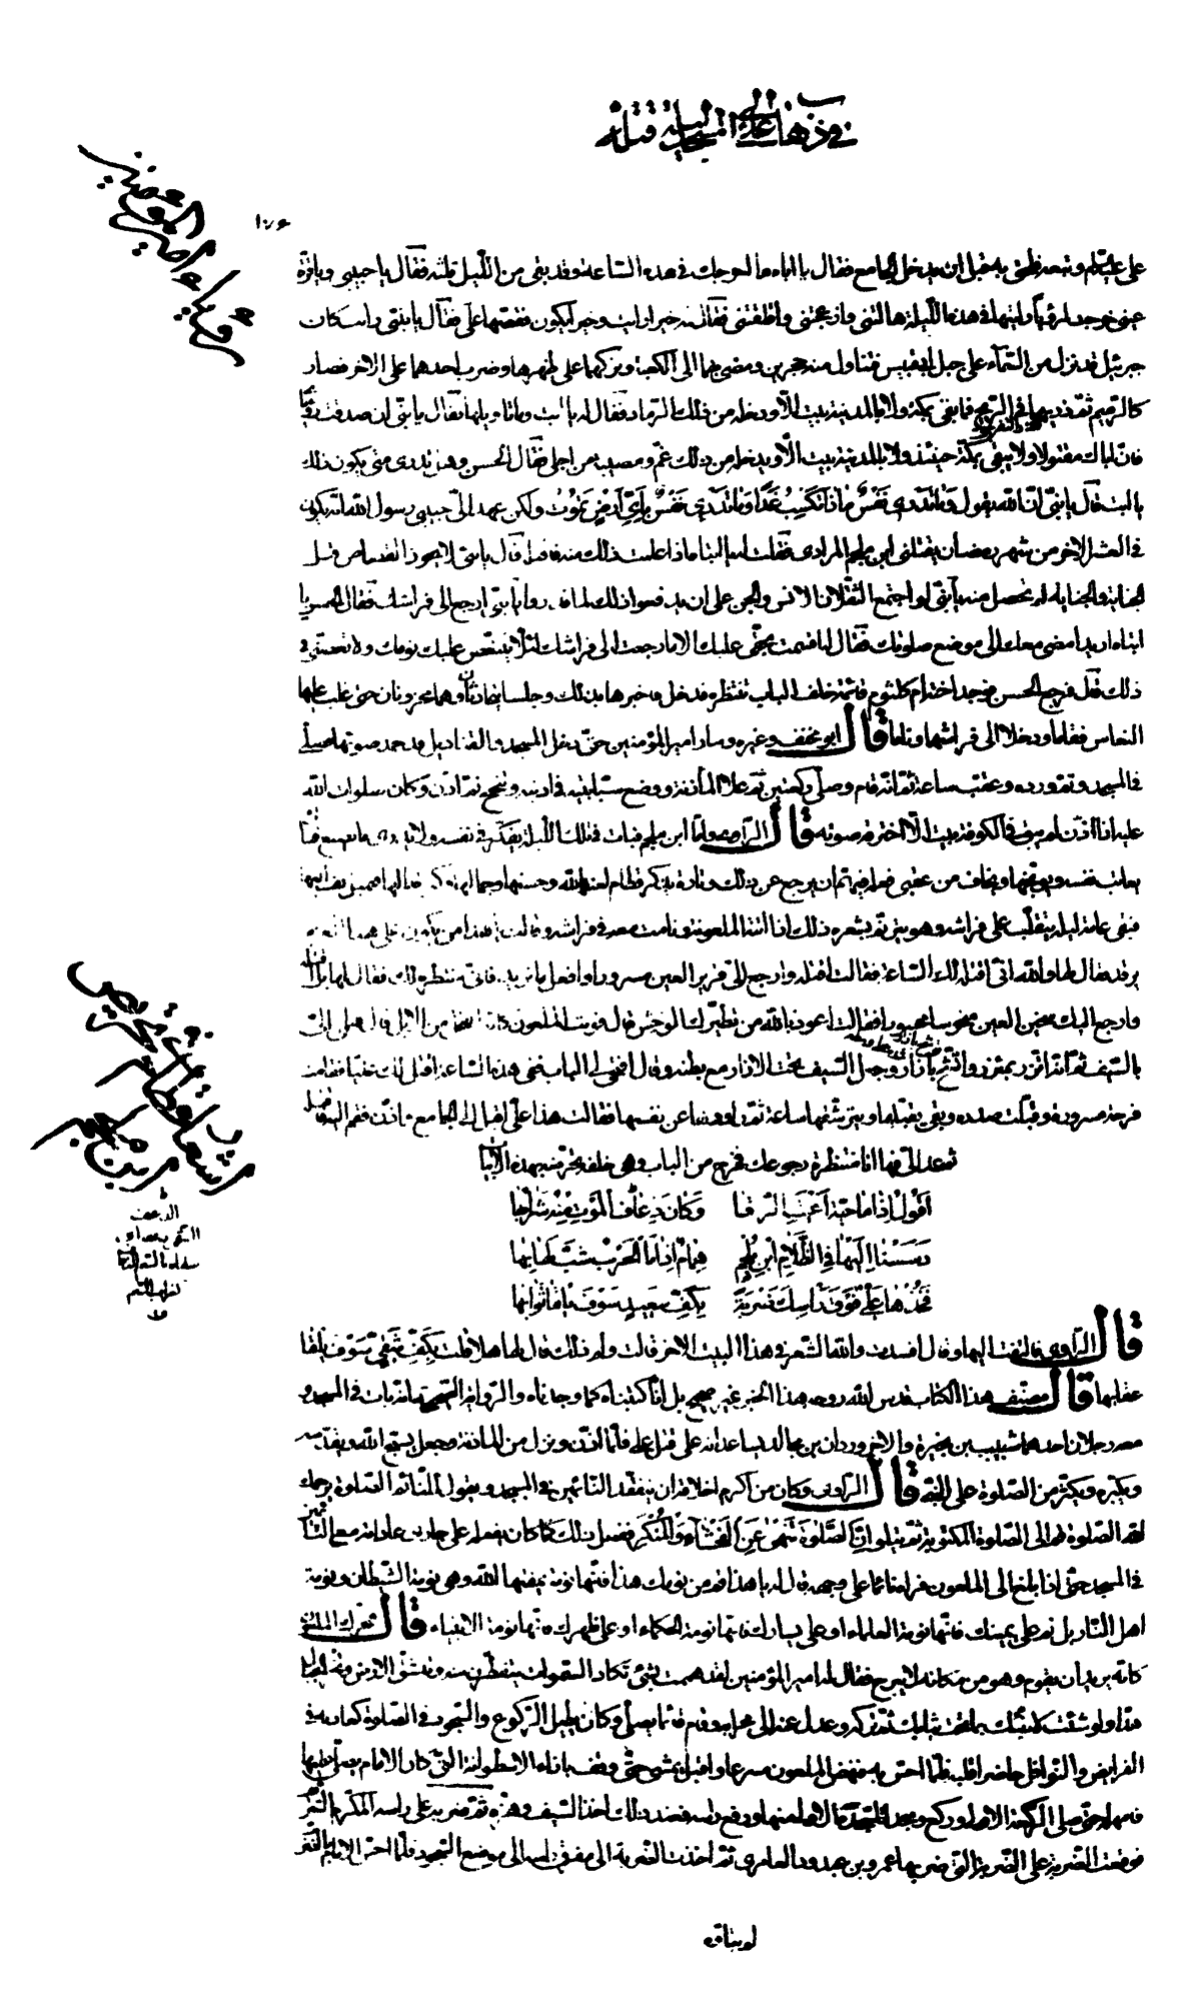 في ذهاب علي الى المسجد ليلة قتله
رؤياء امير المؤمنين
علي عليه السلم وتبعه فلحق به قبل ان يدخل الجامع فقال يا اباه ما اخرجك في هذه الساعة وقد بقي من الليل ثلثه فقال يا حبيبي ويا قرة
عيني خرجت لرؤيا رايتها في هذه الليلة هالتني وازعجتني واقلقتني فقال له خيرا رايت وخيرا يكون فقصها علي فقال يا بني رايت كان
جبرئيل قد نزل من السماء على جبل ابي قبيس فتناول منه حجرين ومضى بهما الى الكعبة وتركهما على ظهرها وضرب احدهما على الاخر فصار
كالرميم ثم ذريهما في الريح فما بقي بمكة ولا بالمدينة بيت الا ودخله من ذلك الرماد فقال له يا ابت وما تاويلها فقال يا بني ان صدقت رؤياي
فان اباك مقتول ولا يبقى بمكة حينئذ ولا بالمدينة بيت الا ويدخله من ذلك غم ومصيبة من اجلي فقال الحسن وهل تدري متى يكون ذلك
يا ابت قال يا بني ان الله يقول وَمَا تَدْرِي نَفْسٌ مَاذَا تَكْسِبُ غَدًا وَمَا تَدْرِي نَفْسٌ بِاَيِّ اَرْضٍ تَمُوْتُ ولكن عهد الي حبيبي رسول الله انه يكون
في العشر الاخر من شهر رمضان يقتلني ابن ملجم المرادي فقلت له يا ابتاه اذا علمت ذلك منه فاقتله قال يا بني لا يجوز القصاص قبل
الجناية والجناية لم تحصل منه يا بني لو اجتمع الثقلان الانس والجن على ان يدفعوا ذلك لما قدروا يا بني ارجع الى فراشك فقال الحسن يا
ابتاه اريد امضي معك الى موضع صلوتك فقال له اقسمت بحقي عليك الا ما رجعت الى فراشك لئلا يتنغص عليك نومك ولا تعصني في
ذلك قال فرجع الحسن فوجد اخته ام كلثوم قائمة خلف الباب تنتظره فدخل فاخبرها بذلك وجلسا يتحادثان وهما محزونان حتى غلب عليهما
النعاس فقاما ودخلا الى فراشهما وناما قال ابو مخنف وغيره وسار امير المؤمنين حتى دخل المسجد والقناديل قد خمد ضوئها فصلى
في المسجد وورده وعقب ساعة ثم انه قام وصلى ركعتين ثم علا المأذنة ووضع سبابتيه في اذنيه وتنحنح ثم اذن وكان صلوات الله
عليه اذا اذن لم يبق في الكوفة بيت الا اخترقه صوته قال الراوي واما ابن ملجم فبات في تلك الليلة يفكر في نفسه ولا يدري ما يصنع فتارة
يعاتب نفسه ويوبخها ويخاف من عقبى فعله فيهم ان يرجع عن ذلك وتارة يذكر قطام لعنها الله وحسنها وجمالها
فبقي عامة ليله يتقلب على فراشه وهو يترنم بشعره ذلك اذا اتته الملعونة ونامت معه في فراشه وقالت يا هذا من
يرقد فقال لها والله اني اقتله لك الساعة فقالت اقتله وارجع الي قرير العين مسرورا وافعل ما تريد فاني منتظرة لك فقال لها بل اقتله
وارجع اليك سخين العين منحوسا محسورا فقالت اعوذ بالله من تطيرك الوحش قال فوثب الملعون
بالسيف ثم انه اتزر بمئزر واتشح بازار وجعل السيف تحت الازار مع بطنه وقال افتحي لي الباب ففي هذه الساعة اقتل لك عليا فقامت
فرحة مسرورة وقبلت صدره وبقي يقبلها ويترشفها ساعة ثم راودها عن نفسها فقالت هذا علي اقبل الى الجامع واذن فقم اليه فاقتله
ثم عد الي فها انا منتظرة رجوعك فخرج من الباب وهي خلفه تحرضه بهذه الابيات
اَقُوْلُ اِذَا مَا حَيَّةٌ اَعْيَتِ الرُّقَا وَكَانَ ذُعَافُ الْمَوْتِ مِنْهُ شَرَابُهَا
دَسَسْنَا اِلَيْهَا فِي الظَّلَامِ ابْنَ مُلْجَمٍ هُمَامٌ اِذَا مَا الْحَرْبُ شَبَّ لَهَابُهَا
فَخُذْهَا عَلِيُّ فَوْقَ رَأْسِكَ ضَرْبَةً بِكَفِّ سَعِيْدٍ سَوْفَ يَلْقَى ثَوَابَهَا
قال الراوي فالتفت اليها وقال افسدت والله الشعر في هذا البيت الاخر قالت ولم ذلك قال لها هلا قلت بِكَفِّ شَقِيٍّ سَوْفَ يَلْقَى
عقابها قال مصنف هذا الكتاب قدس الله روحه هذا الخبر غير صحيح بل انا كتبناه كما وجدناه والرواية الصحيحة انه بات في المسجد و
معه رجلان احدهما شبيب بن بحيرة والاخر وردان بن مجالد يساعدانه على قتل علي فلما اذن ونزل من المأذنة وجعل يسبح الله ويقدسه
ويكبره ويكثر من الصلوة على النبي قال الراوي وكان من اكرم اخلاقه انه يتفقد النائمين في المسجد ويقول للنائم الصلوة يرحمك
الله الصلوة قم الى الصلوة المكتوبة ثم يتلو اِنَّ الصَّلٰوةَ تَنْهٰى عَنِ الْفَحْشَاءِ وَالْمُنْكَرِ ففعل ذلك كما كان يفعله على مجاري عادته مع النائمين
في المسجد حتى اذا بلغ الى الملعون فراه نائما على وجهه قال له يا هذا قم من نومك هذا فانها نومة يمقتها الله وهي نومة الشيطان ونومة
اهل النار بل نم على يمينك فانها نومة العلماء او على يسارك فانها نومة الحكماء او على ظهرك فانها نومة الانبياء قال فتحرك الملعون
كانه يريد ان يقوم وهو من مكانه لا يبرح فقال له امير المؤمنين لقد هممت بشيء تكاد السموات يتفطرن منه وتنشق الارض وتخر الجبال
هدا ولو شئت لانبأتك بما تحت ثيابك ثم تركه وعدل عنه الى محرابه وقام قائما يصلي وكان يطيل الركوع والسجود في الصلوة كعادته في
الفرايض والنوافل حاضرا قلبه فلما احس به فنهض الملعون مسرعا واقبل يمشي حتى وقف بازاء الاسطوانة التي كان الامام يصلي عليها
فامهله حتى صلى الركعة الاولى وركع وسجد السجدة الاولى منها ورفع راسه فعند ذلك اخذ السيف وهزه ثم ضربه على راسه المكرم الشريف
فوقعت الضربة على الضربة التي ضربه عمرو بن عبدود العامري ثم اخذت الضربة الى مفرق راسه الى موضع السجود فلما احس الامام بالضرب
اشعار قطام في تحريض ابن ملجم
لم يتاوه